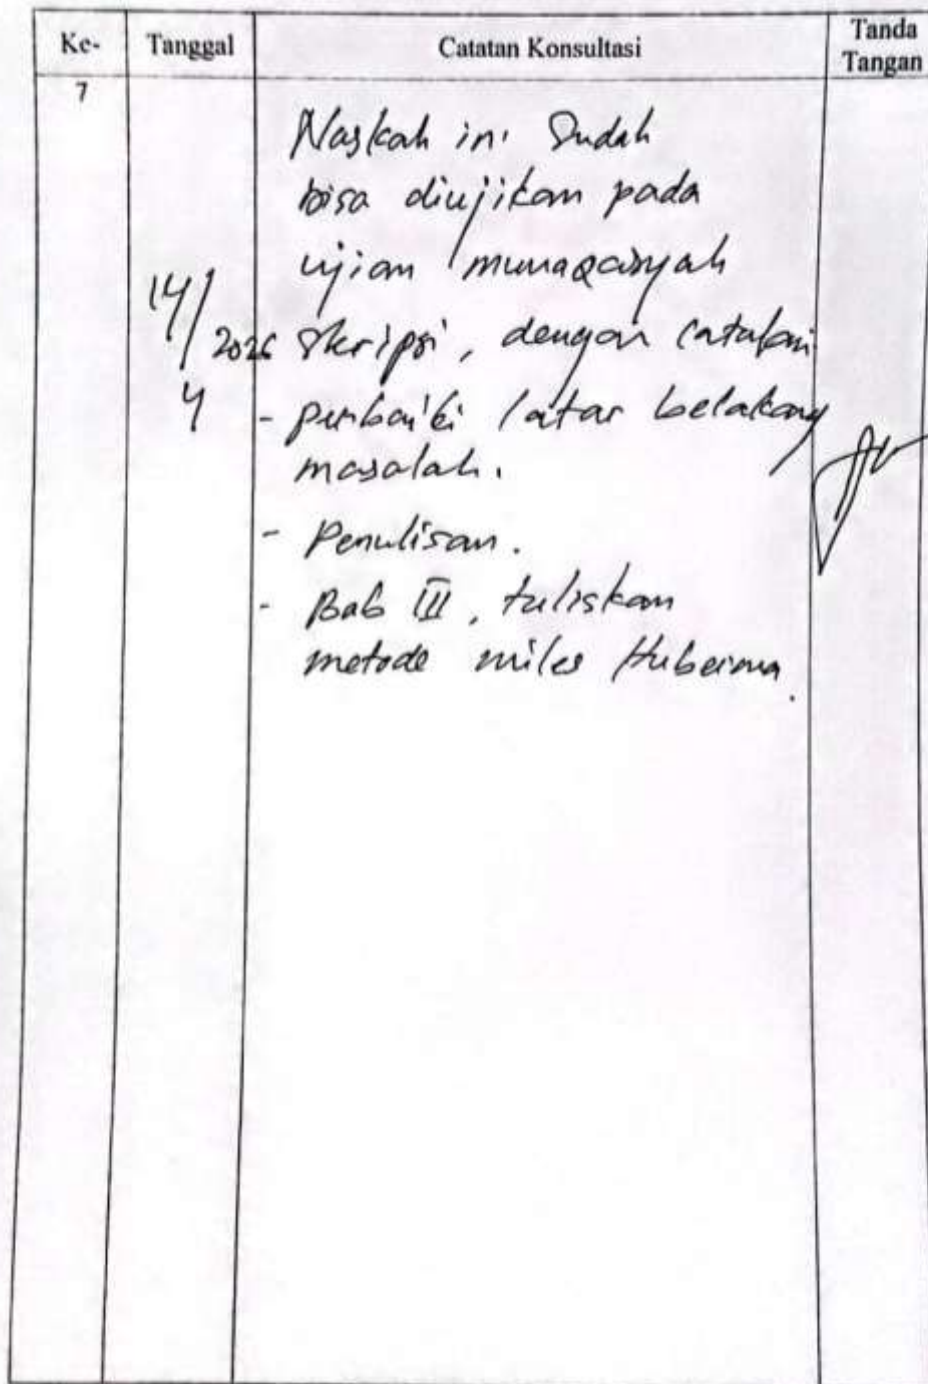 Ke- Tanggal Catatan Konsultasi Tanda Tangan
7
Naskah ini Sudah
bisa diujikan pada
ujian munaqasyah
14/4 2026
skripsi, dengan catatan
- perbaiki latar belakang
masalah.
- Penulisan.
- Bab III, tuliskan
metode miles Hubeima.